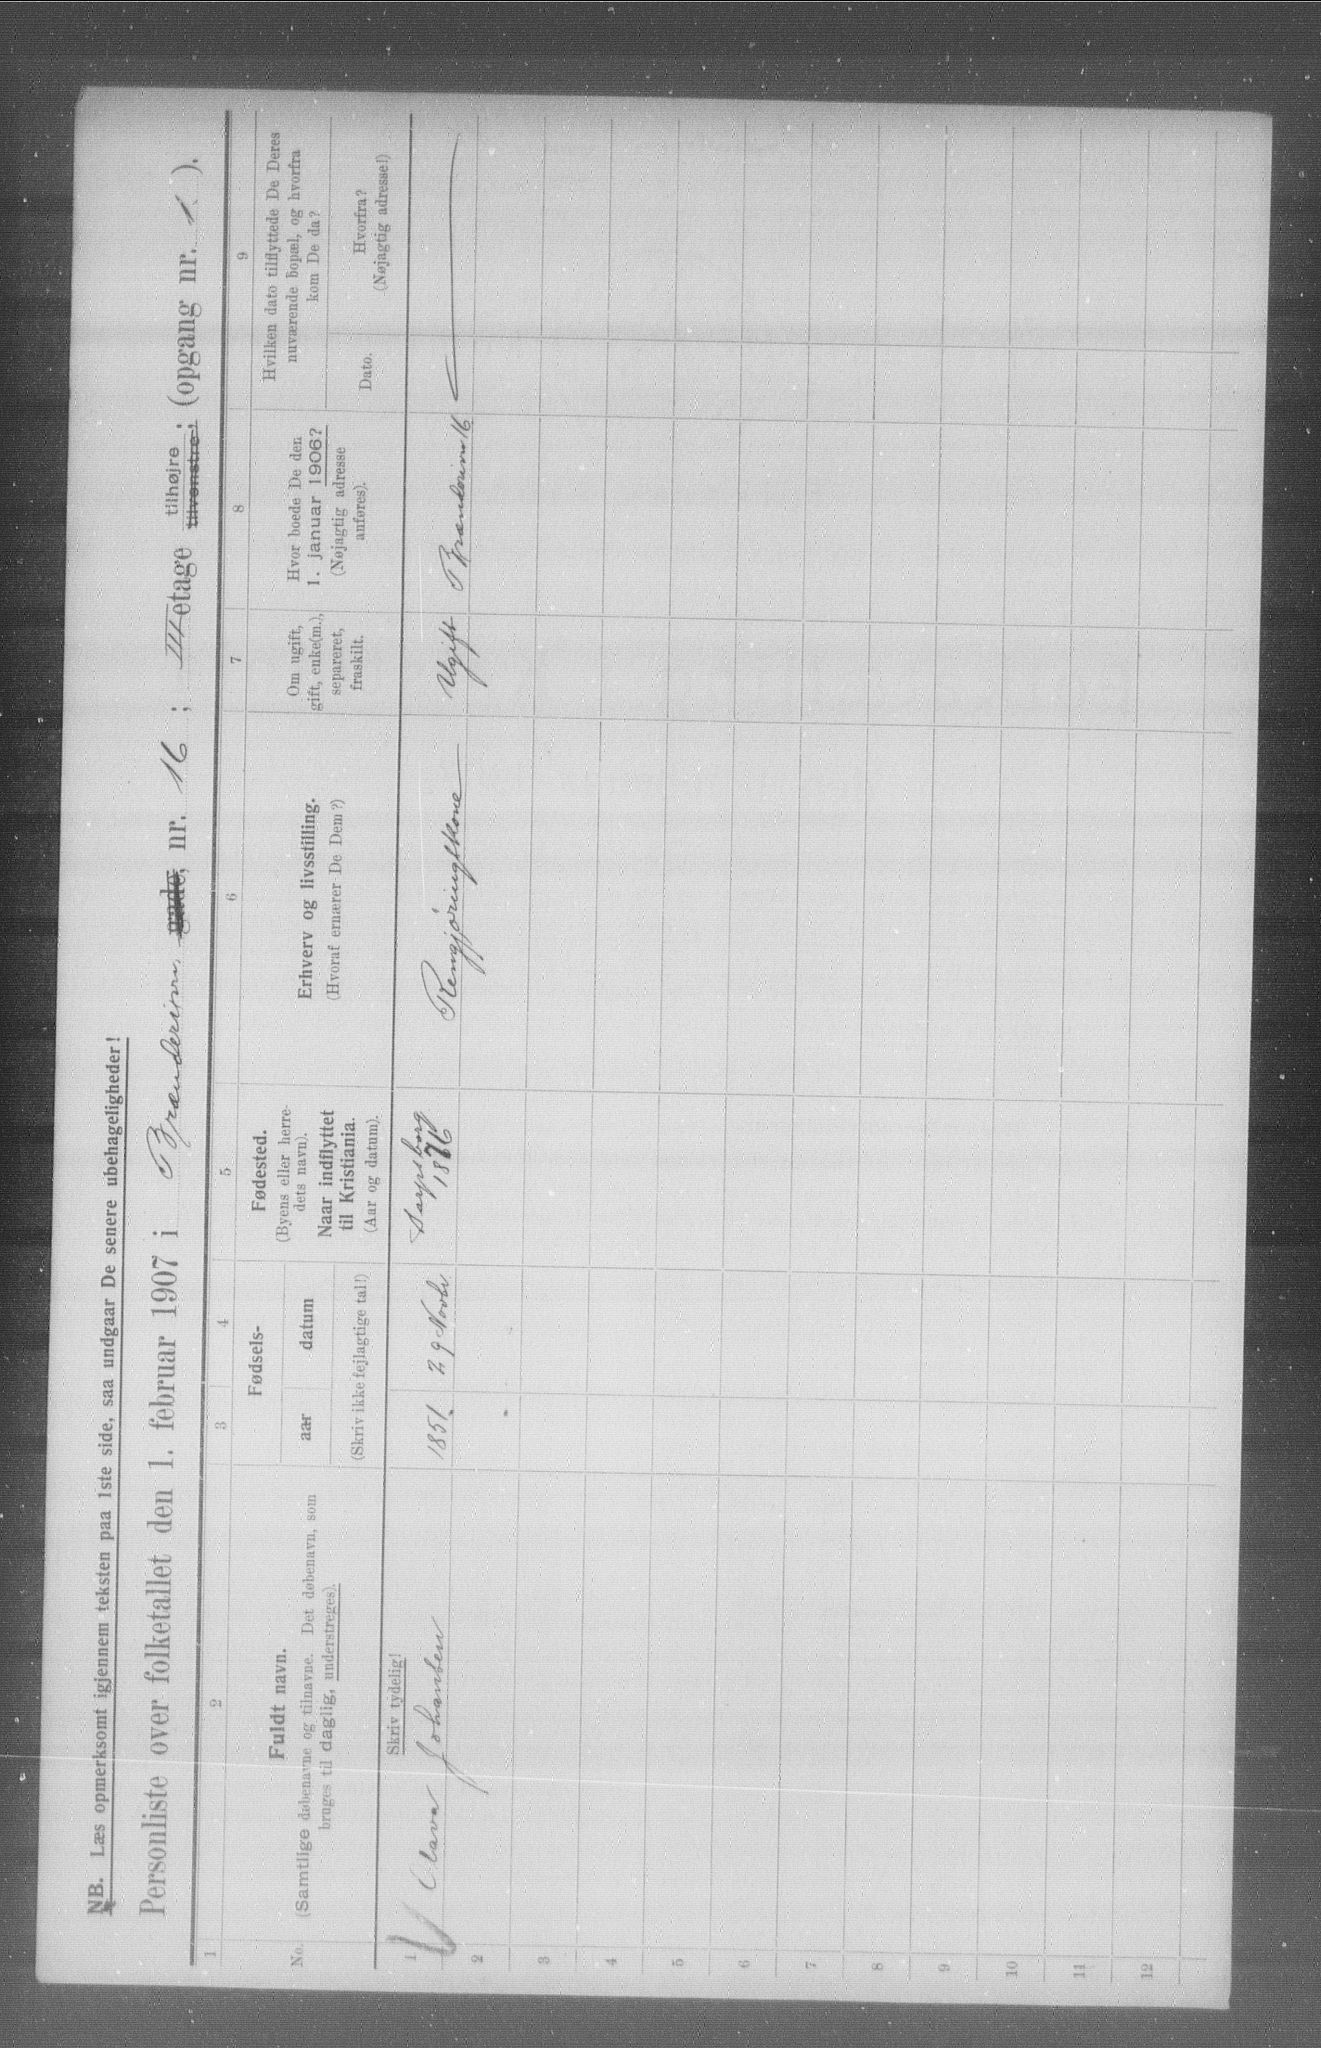 NB. Læs opmerksomt igjennem teksten paa 1ste side, saa undgaar De senere ubehageligheder!
Personliste over folketallet den 1. februar 1907 i Brænderivn. gade, nr. 16 ; III etage tilhøjre ; tilvenstre ; (opgang nr. 1 ).
1 2 3 4 5 6 7 8 9
No.
Fuldt navn.
(Samtlige døbenavne og tilnavne. Det døbenavn, som
bruges til daglig, understreges).
Fødsels-
aar datum
(Skriv ikke fejlagtige tal!)
Fødested.
(Byens eller herre-
dets navn).
Naar indflyttet
til Kristiania.
(Aar og datum).
Erhverv og livsstilling.
(Hvoraf ernærer De Dem?)
Om ugift,
gift, enke(m.),
separeret,
fraskilt.
Hvor boede De den
1. januar 1906?
(Nøjagtig adresse
anføres).
Hvilken dato tilflyttede De Deres
nuværende bopæl, og hvorfra
kom De da?
Dato.
Hvorfra?
(Nøjagtig adresse!)
Skriv tydelig!
1 Clara Johansen 1851 29 Novbr Sarpsborg 1876 Rengjøringskone Ugift Brænderivn 16
2
3
4
5
6
7
8
9
10
11
12